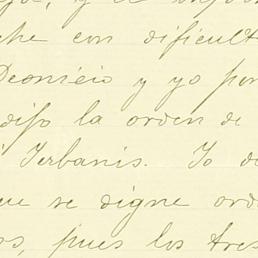 che con dificult
Deonicio y yo por
dijo la orden de
Terbanis. Yo d
ue se digne ord
os, pues los tres